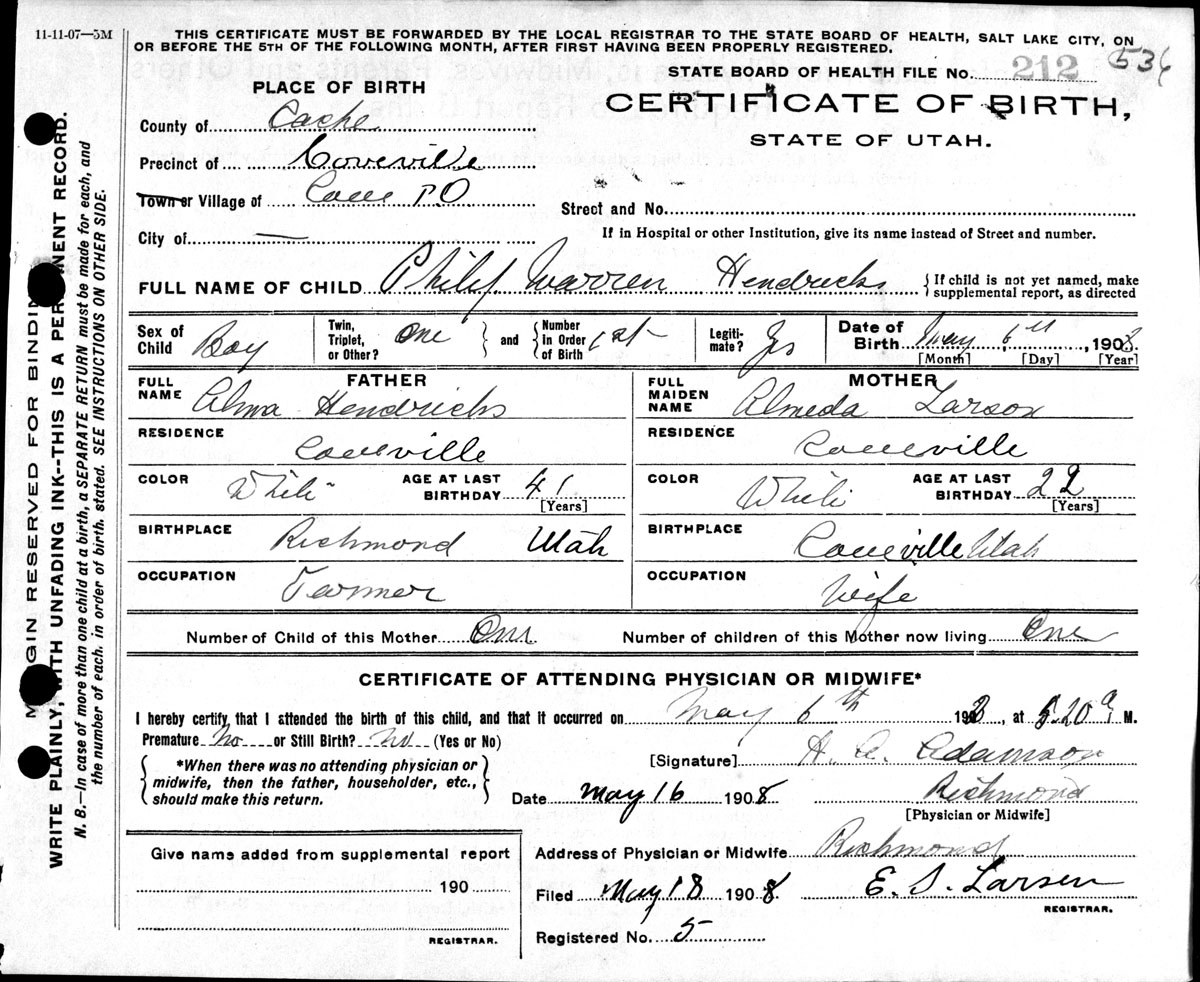 11-11-07—5M
THIS CERTIFICATE MUST BE FORWARDED BY THE LOCAL REGISTRAR TO THE STATE BOARD OF HEALTH, SALT LAKE CITY, ON
OR BEFORE THE 5TH OF THE FOLLOWING MONTH, AFTER FIRST HAVING BEEN PROPERLY REGISTERED.
STATE BOARD OF HEALTH FILE No. 212 536
PLACE OF BIRTH
CERTIFICATE OF BIRTH,
STATE OF UTAH.
County of Cache
Precinct of Coveville
Town or Village of Cove P.O
Street and No.
City of —
If in Hospital or other Institution, give its name instead of Street and number.
FULL NAME OF CHILD Philip Warren Hendricks { If child is not yet named, make supplemental report, as directed
Sex of Child Boy Twin, Triplet, or Other? One } and { Number In Order of Birth 1st Legiti- mate? Yes Date of Birth May 6th, 1908
[Month] [Day] [Year]
FATHER
FULL NAME Alma Hendricks
RESIDENCE Coveville
COLOR White AGE AT LAST BIRTHDAY 41 [Years]
BIRTHPLACE Richmond Utah
OCCUPATION Farmer
MOTHER
FULL MAIDEN NAME Almeda Larson
RESIDENCE Coveville
COLOR White AGE AT LAST BIRTHDAY 22 [Years]
BIRTHPLACE Coveville Utah
OCCUPATION Wife
Number of Child of this Mother One Number of children of this Mother now living One
CERTIFICATE OF ATTENDING PHYSICIAN OR MIDWIFE*
I hereby certify that I attended the birth of this child, and that it occurred on May 6th 1908, at 5.20 a M.
Premature No or Still Birth? No (Yes or No)
[Signature] H. A. Adamson
{ *When there was no attending physician or
midwife, then the father, householder, etc.,
should make this return. }
Date May 16 1908 Richmond
[Physician or Midwife]
Give name added from supplemental report
190
REGISTRAR.
Address of Physician or Midwife Richmond
Filed May 18 1908 E. S. Larsen
REGISTRAR.
Registered No. 5
MARGIN RESERVED FOR BINDING
WRITE PLAINLY, WITH UNFADING INK--THIS IS A PERMANENT RECORD.
N. B.—In case of more than one child at a birth, a SEPARATE RETURN must be made for each, and
the number of each, in order of birth, stated. SEE INSTRUCTIONS ON OTHER SIDE.